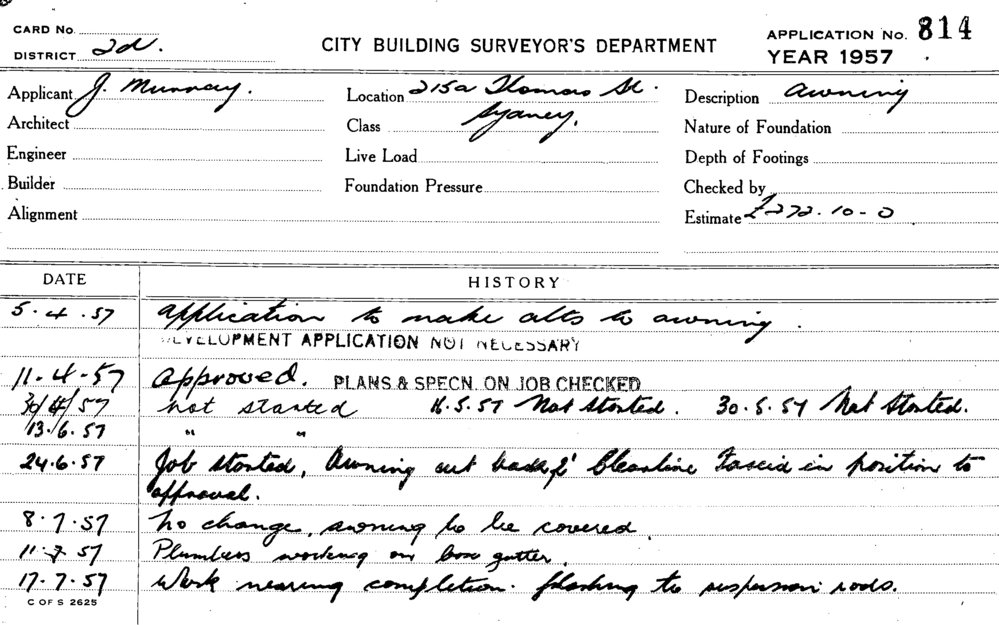 CARD No.
DISTRICT 2d.
CITY BUILDING SURVEYOR'S DEPARTMENT
APPLICATION No. 814
YEAR 1957
Applicant J. Murray.
Location 215a Thomas St.
Sydney.
Description Awning
Architect
Class
Nature of Foundation
Engineer
Live Load
Depth of Footings
Builder
Foundation Pressure
Checked by
Alignment
Estimate £272.10-0
DATE HISTORY
5.4.57 Application to make alts to awning.
DEVELOPMENT APPLICATION NOT NECESSARY
11-4-57 Approved. PLANS & SPECN. ON JOB CHECKED
30/4/57 Not started 16.5.57 Not Started. 30.5.57 Not Started.
13.6.57 " "
24.6.57 Job started, Awning cut back 2' Cleanline Fascia in position to
approval.
8.7.57 No change, awning to be covered.
11.7.57 Plumbers working on box gutter.
17.7.57 Work nearing completion. flashing to suspension rods.
C OF S 2625